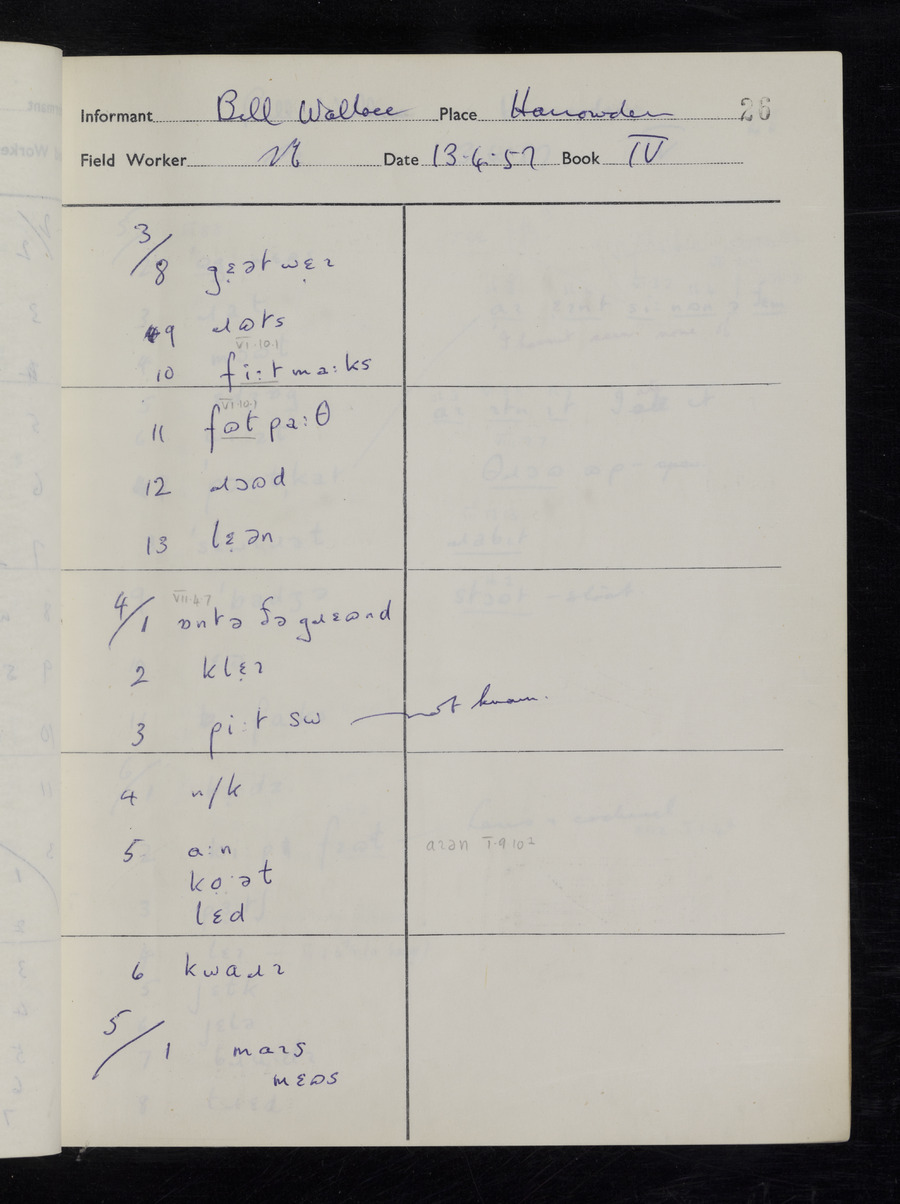 Informant Bill Wallace Place Harrowden 26
Field Worker Date 13·4·57 Book IV
3/8 gɛ̣ət wɛ̣ɪ
9 ɹɷts
VI·10·1
10 fi:t ma:ks
VI·10·1
11 fɷt pa:θ
12 ɹɔɷd
13 lɛ̣ən
VII·4·7
4/1 ɒntə ðə gɹɛɷnd
2 klɛ̣ɪ
3 pi:t sɷ — not known.
4 n/k
5 a:n aɪən I·9·10²
kọ·ət
lɛd
6 kwaɹɪ
5/1 maɪs
mɛɷs